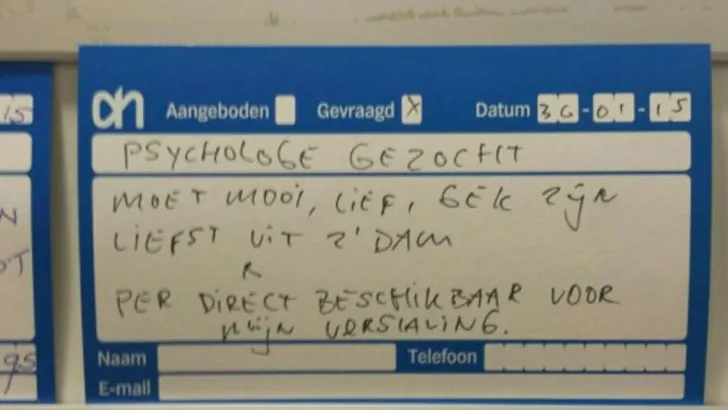 ah Aangeboden Gevraagd X Datum 30-01-15
PSYCHOLOGE GEZOCHT
MOET MOOI, LIEF, GEK ZIJN
LIEFST UIT Z'DAM
R
PER DIRECT BESCHIKBAAR VOOR
MIJN VERSLAVING.
Naam Telefoon
E-mail
15
N
OT
95